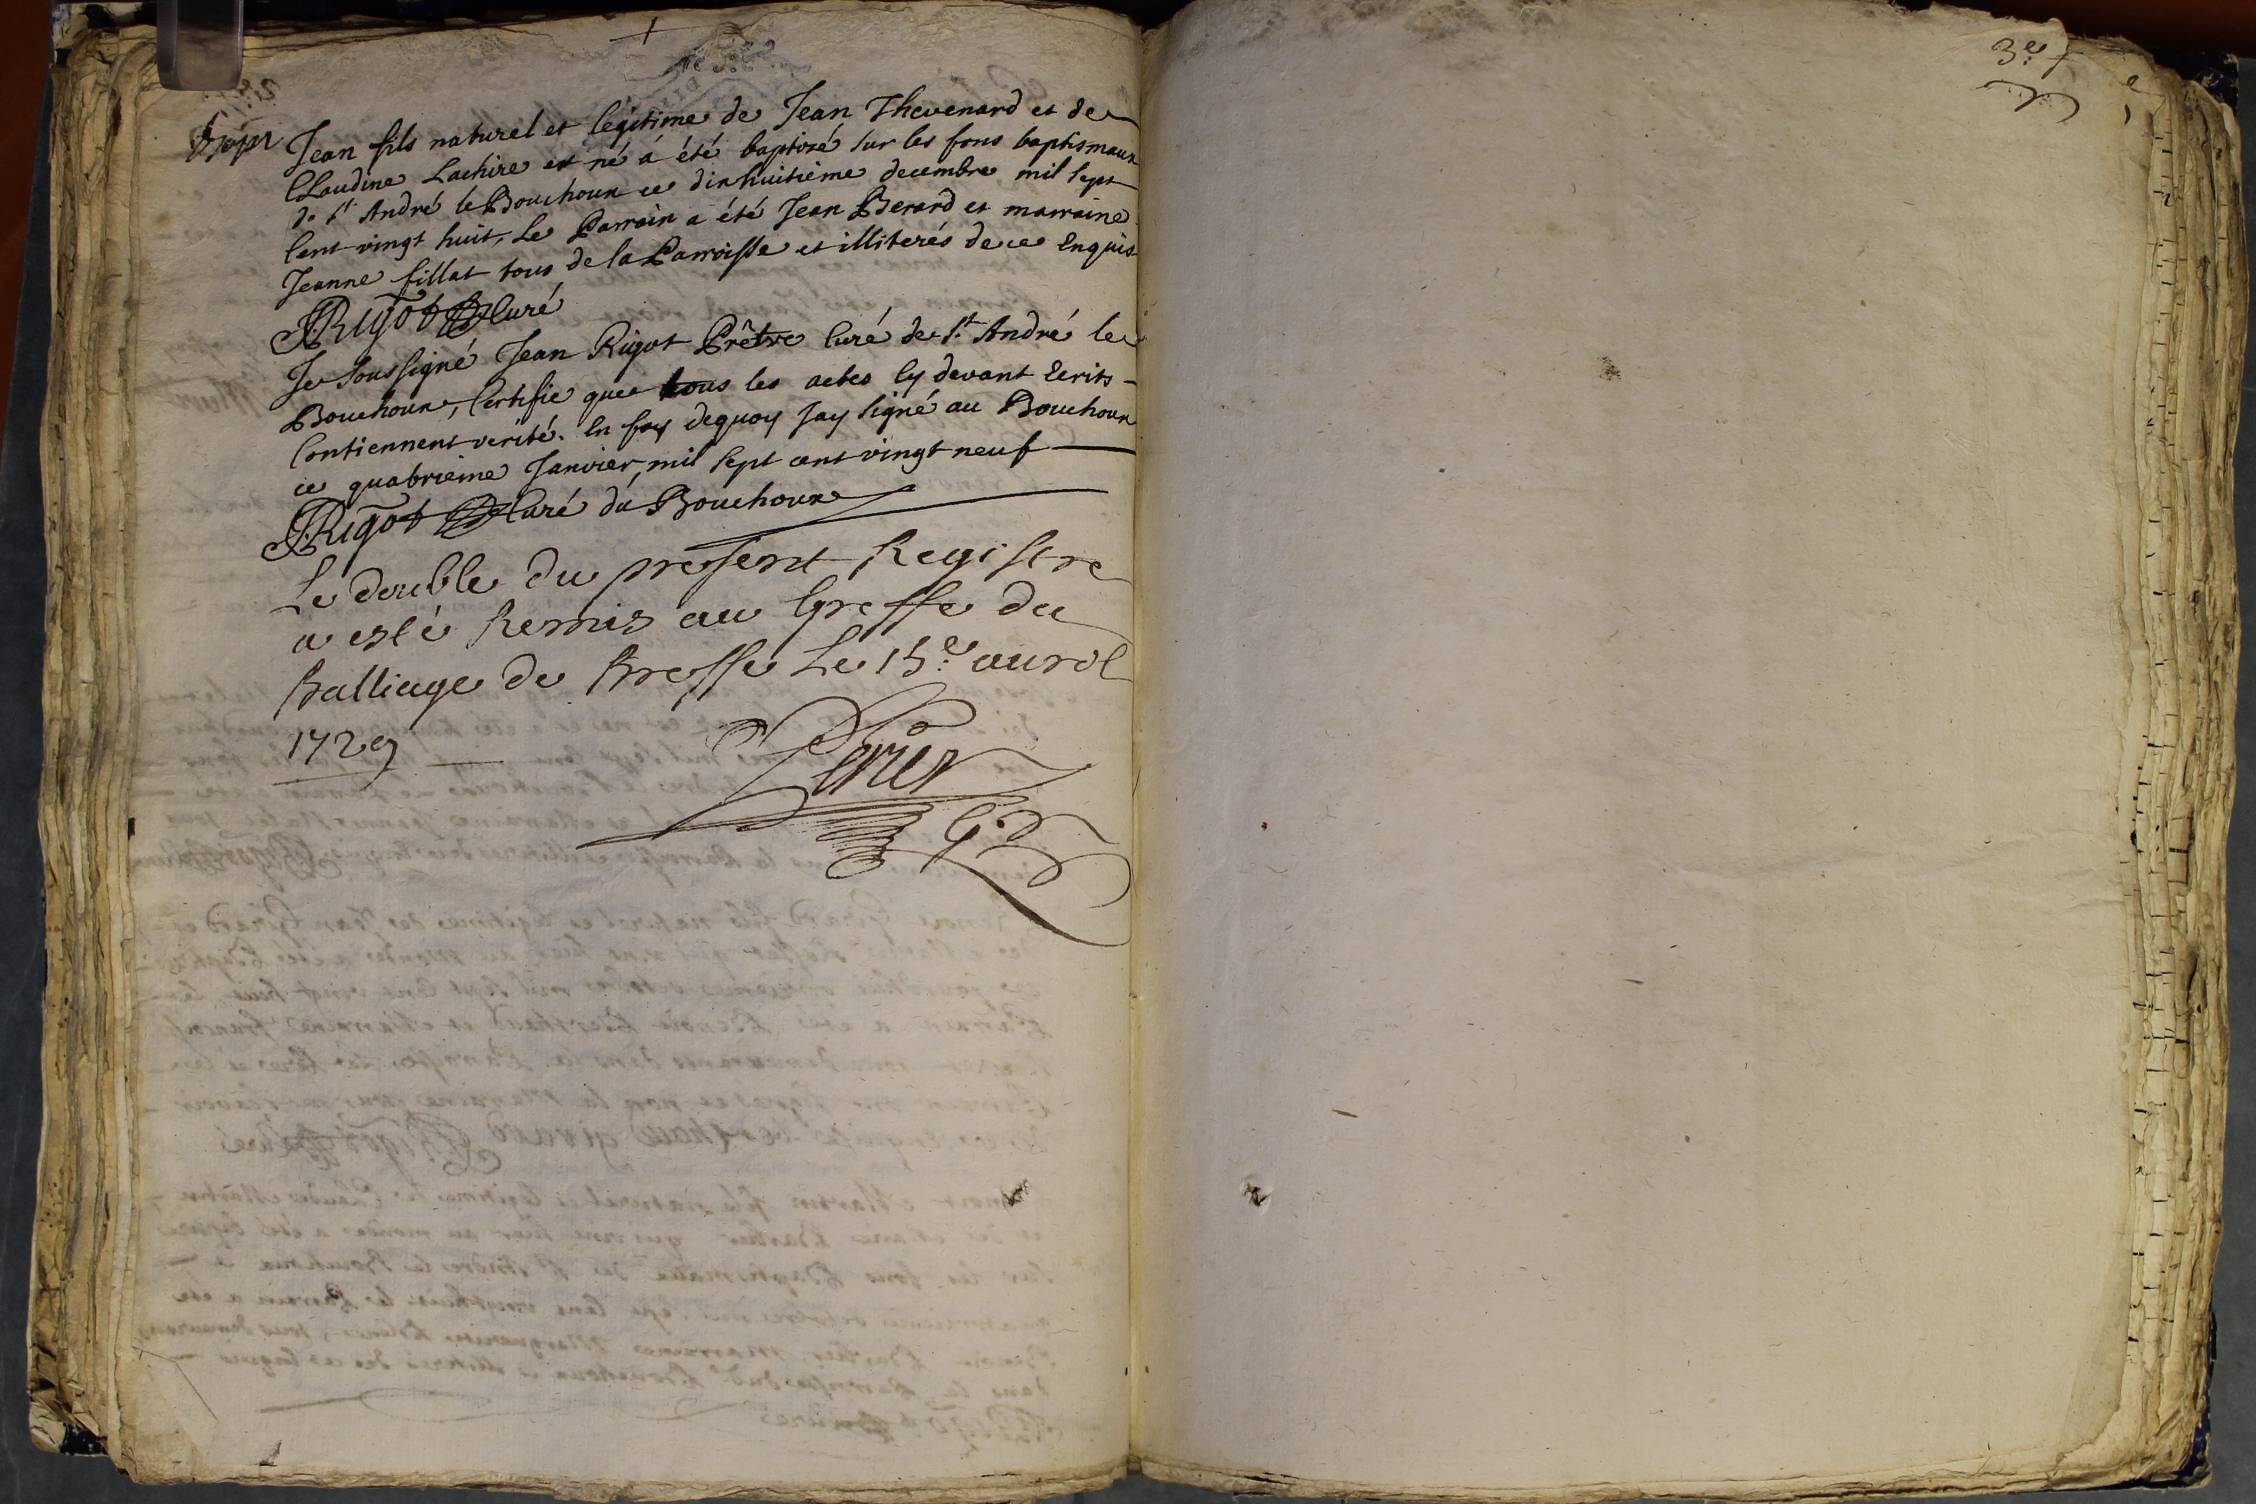 Bapt
Jean fils naturel et légitime de Jean Thevenard et de
Claudine Lachize est né á été baptisé sur les fons baptismaux
de St André le Bouchoux ce dixhuitième decembre mil sept
Cent vingt huit, Le Parrain a été Jean Berard et marraine
Jeanne fillat tous de la Parroisse et illiterés de ce Enquis
JRigot Curé
Je soussigné Jean Rigot Prêtre Curé de St André le
Bouchoux, Certifie que tous les actes Cy devant Ecrits
Contiennent verité. En foy dequoy Jay signé au Bouchoux
ce quatrieme Janvier mil sept cent vingt neuf
JRigot Curé du Bouchoux
Le double du present Registre
a esté Remis au Greffe du
Balliage de Bresse Le 15e avril
1729
Perier
3e f